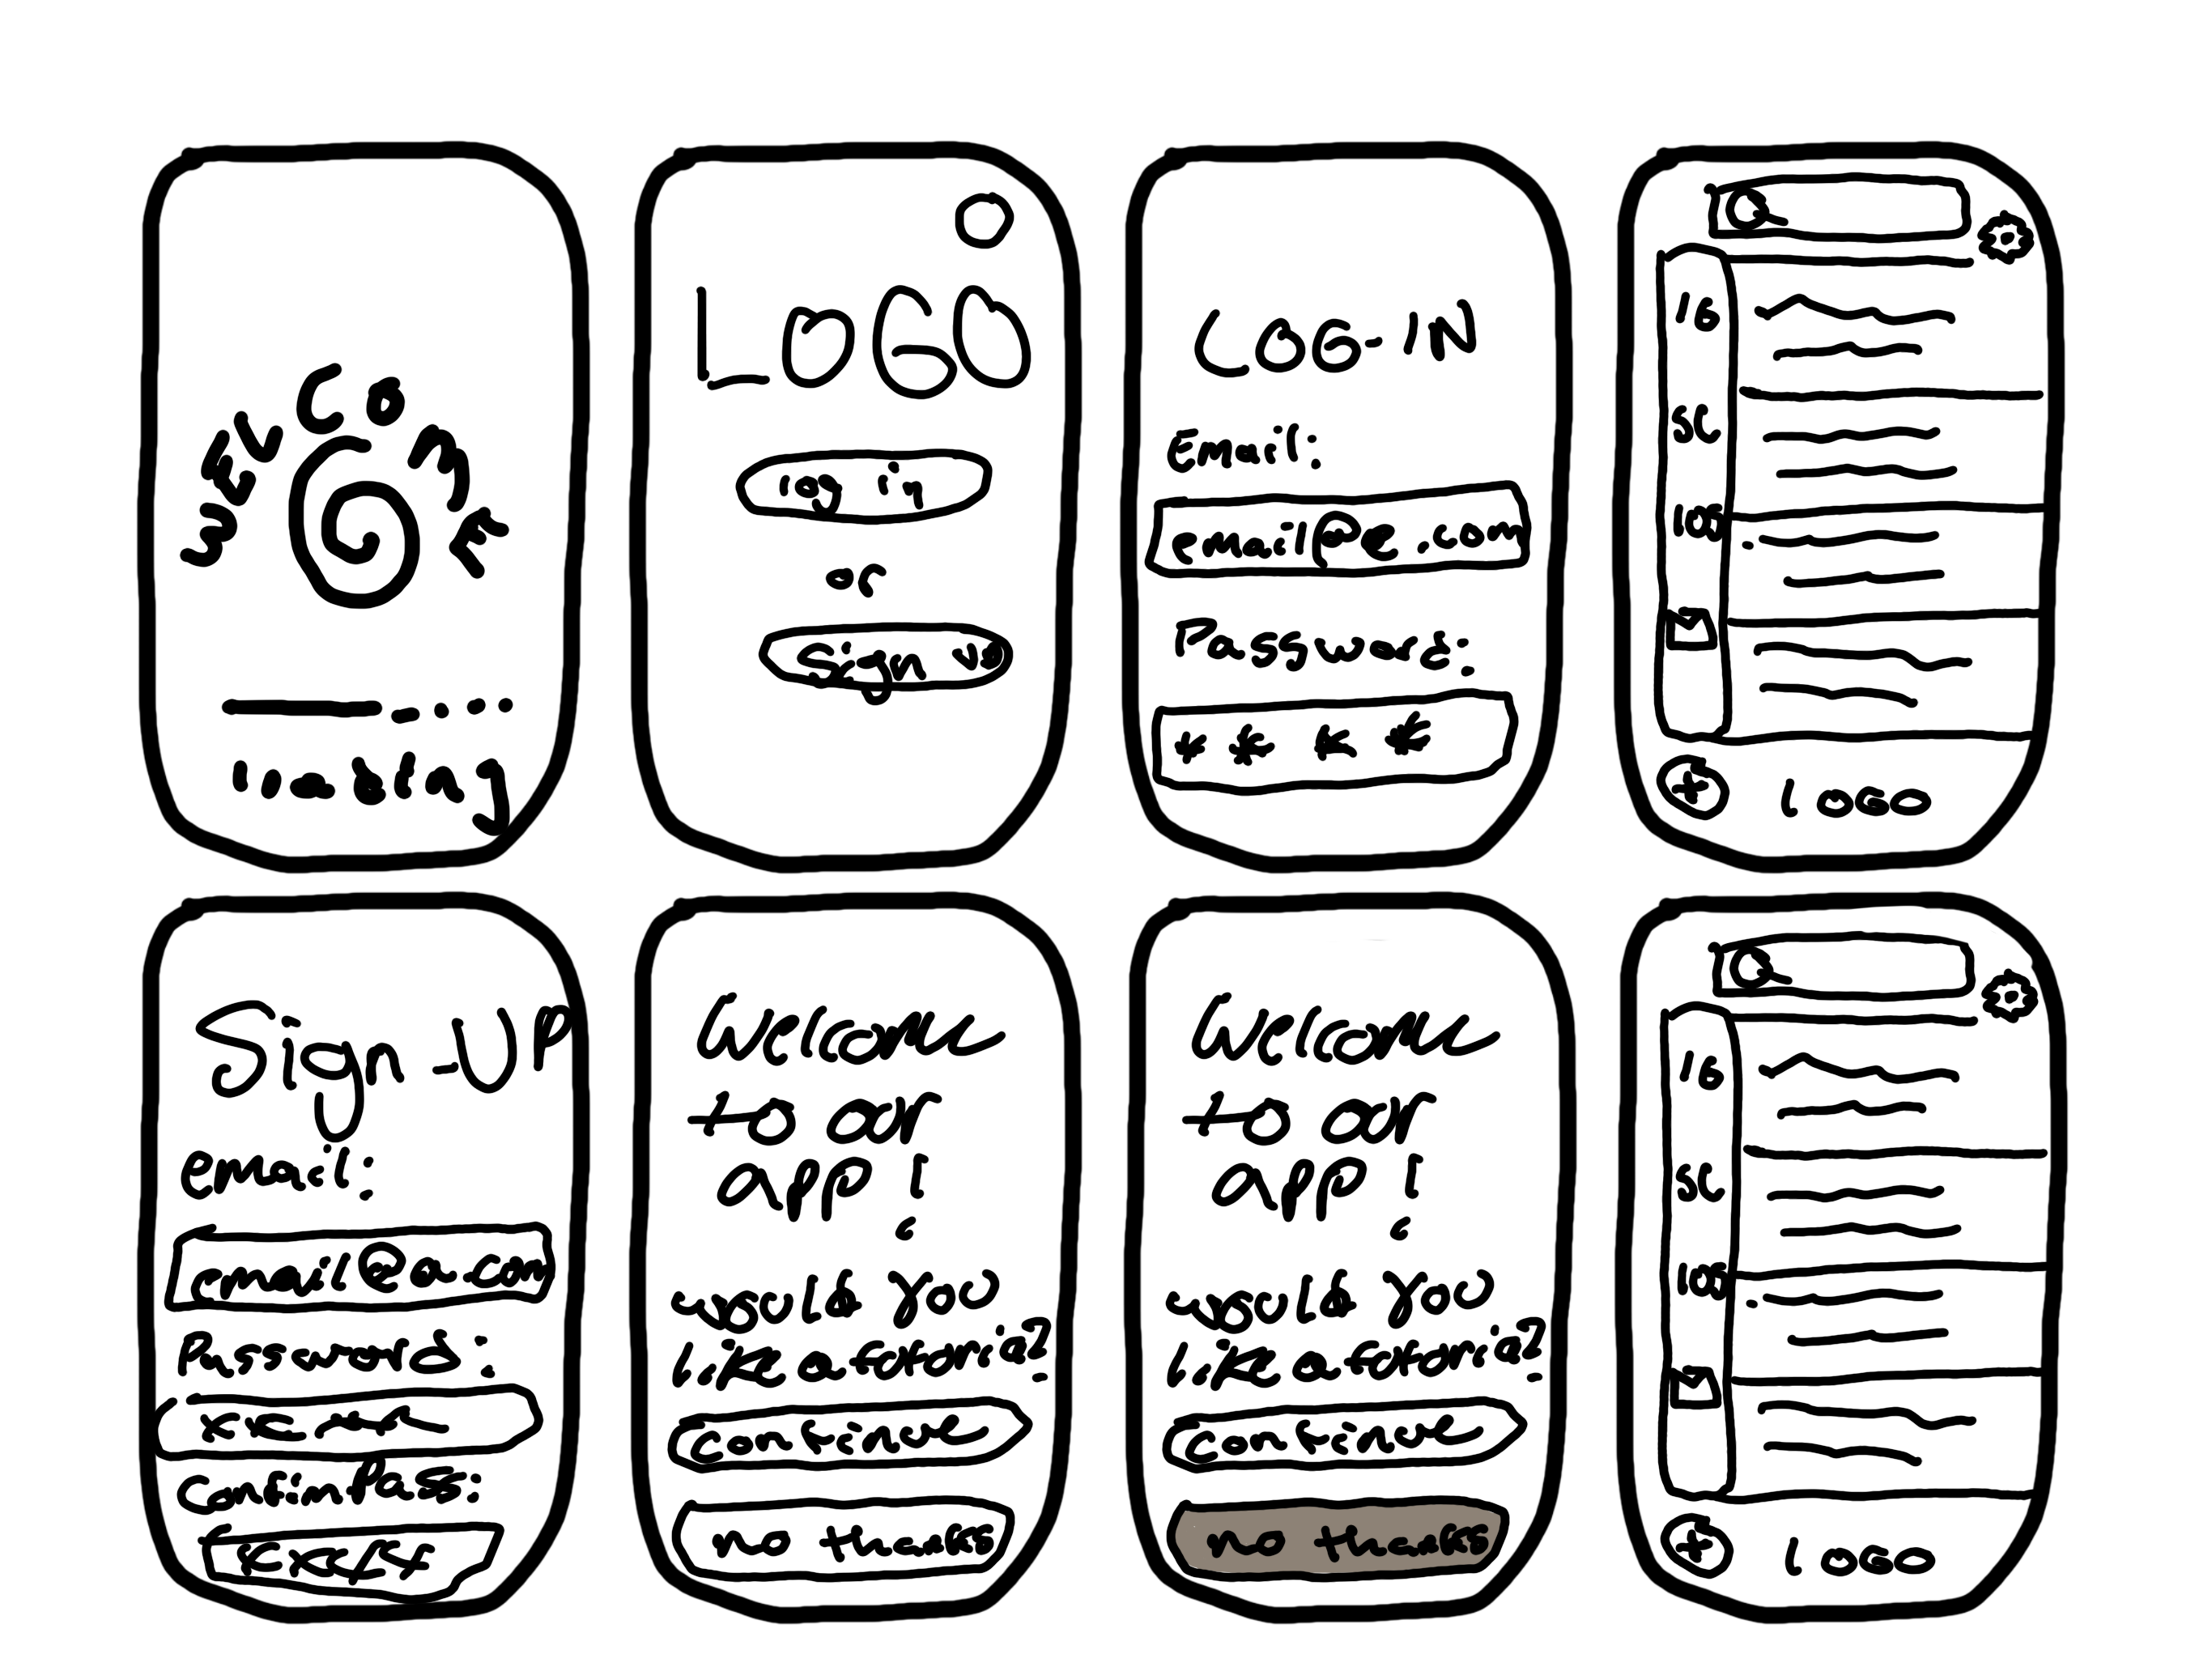 WELCOME
loading
LOGO
log in
or
Sign up
LOG-IN
Email:
email@e.com
Password:
****
16
SC
LOGO
Sign-UP
email:
email@a.com
Password:
Welcome
to our
app!
would you
like a tutorial?
Continue
no thanks
Welcome
to our
app!
would you
like a tutorial?
Continue
no thanks
16
SC
LOGO